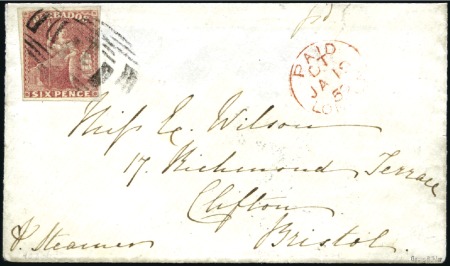 BARBADOS
SIX PENCE
PAID
CT
JA 19
Miss E. Wilson
17. Richmond Terrace
Clifton
Bristol.
P. Steamer